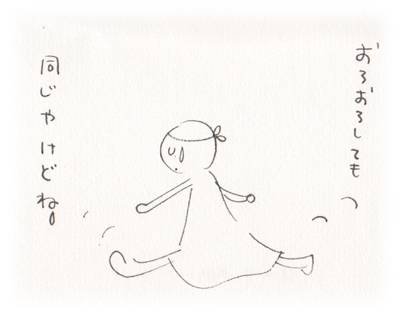 おろおろしても
同じやけどねー